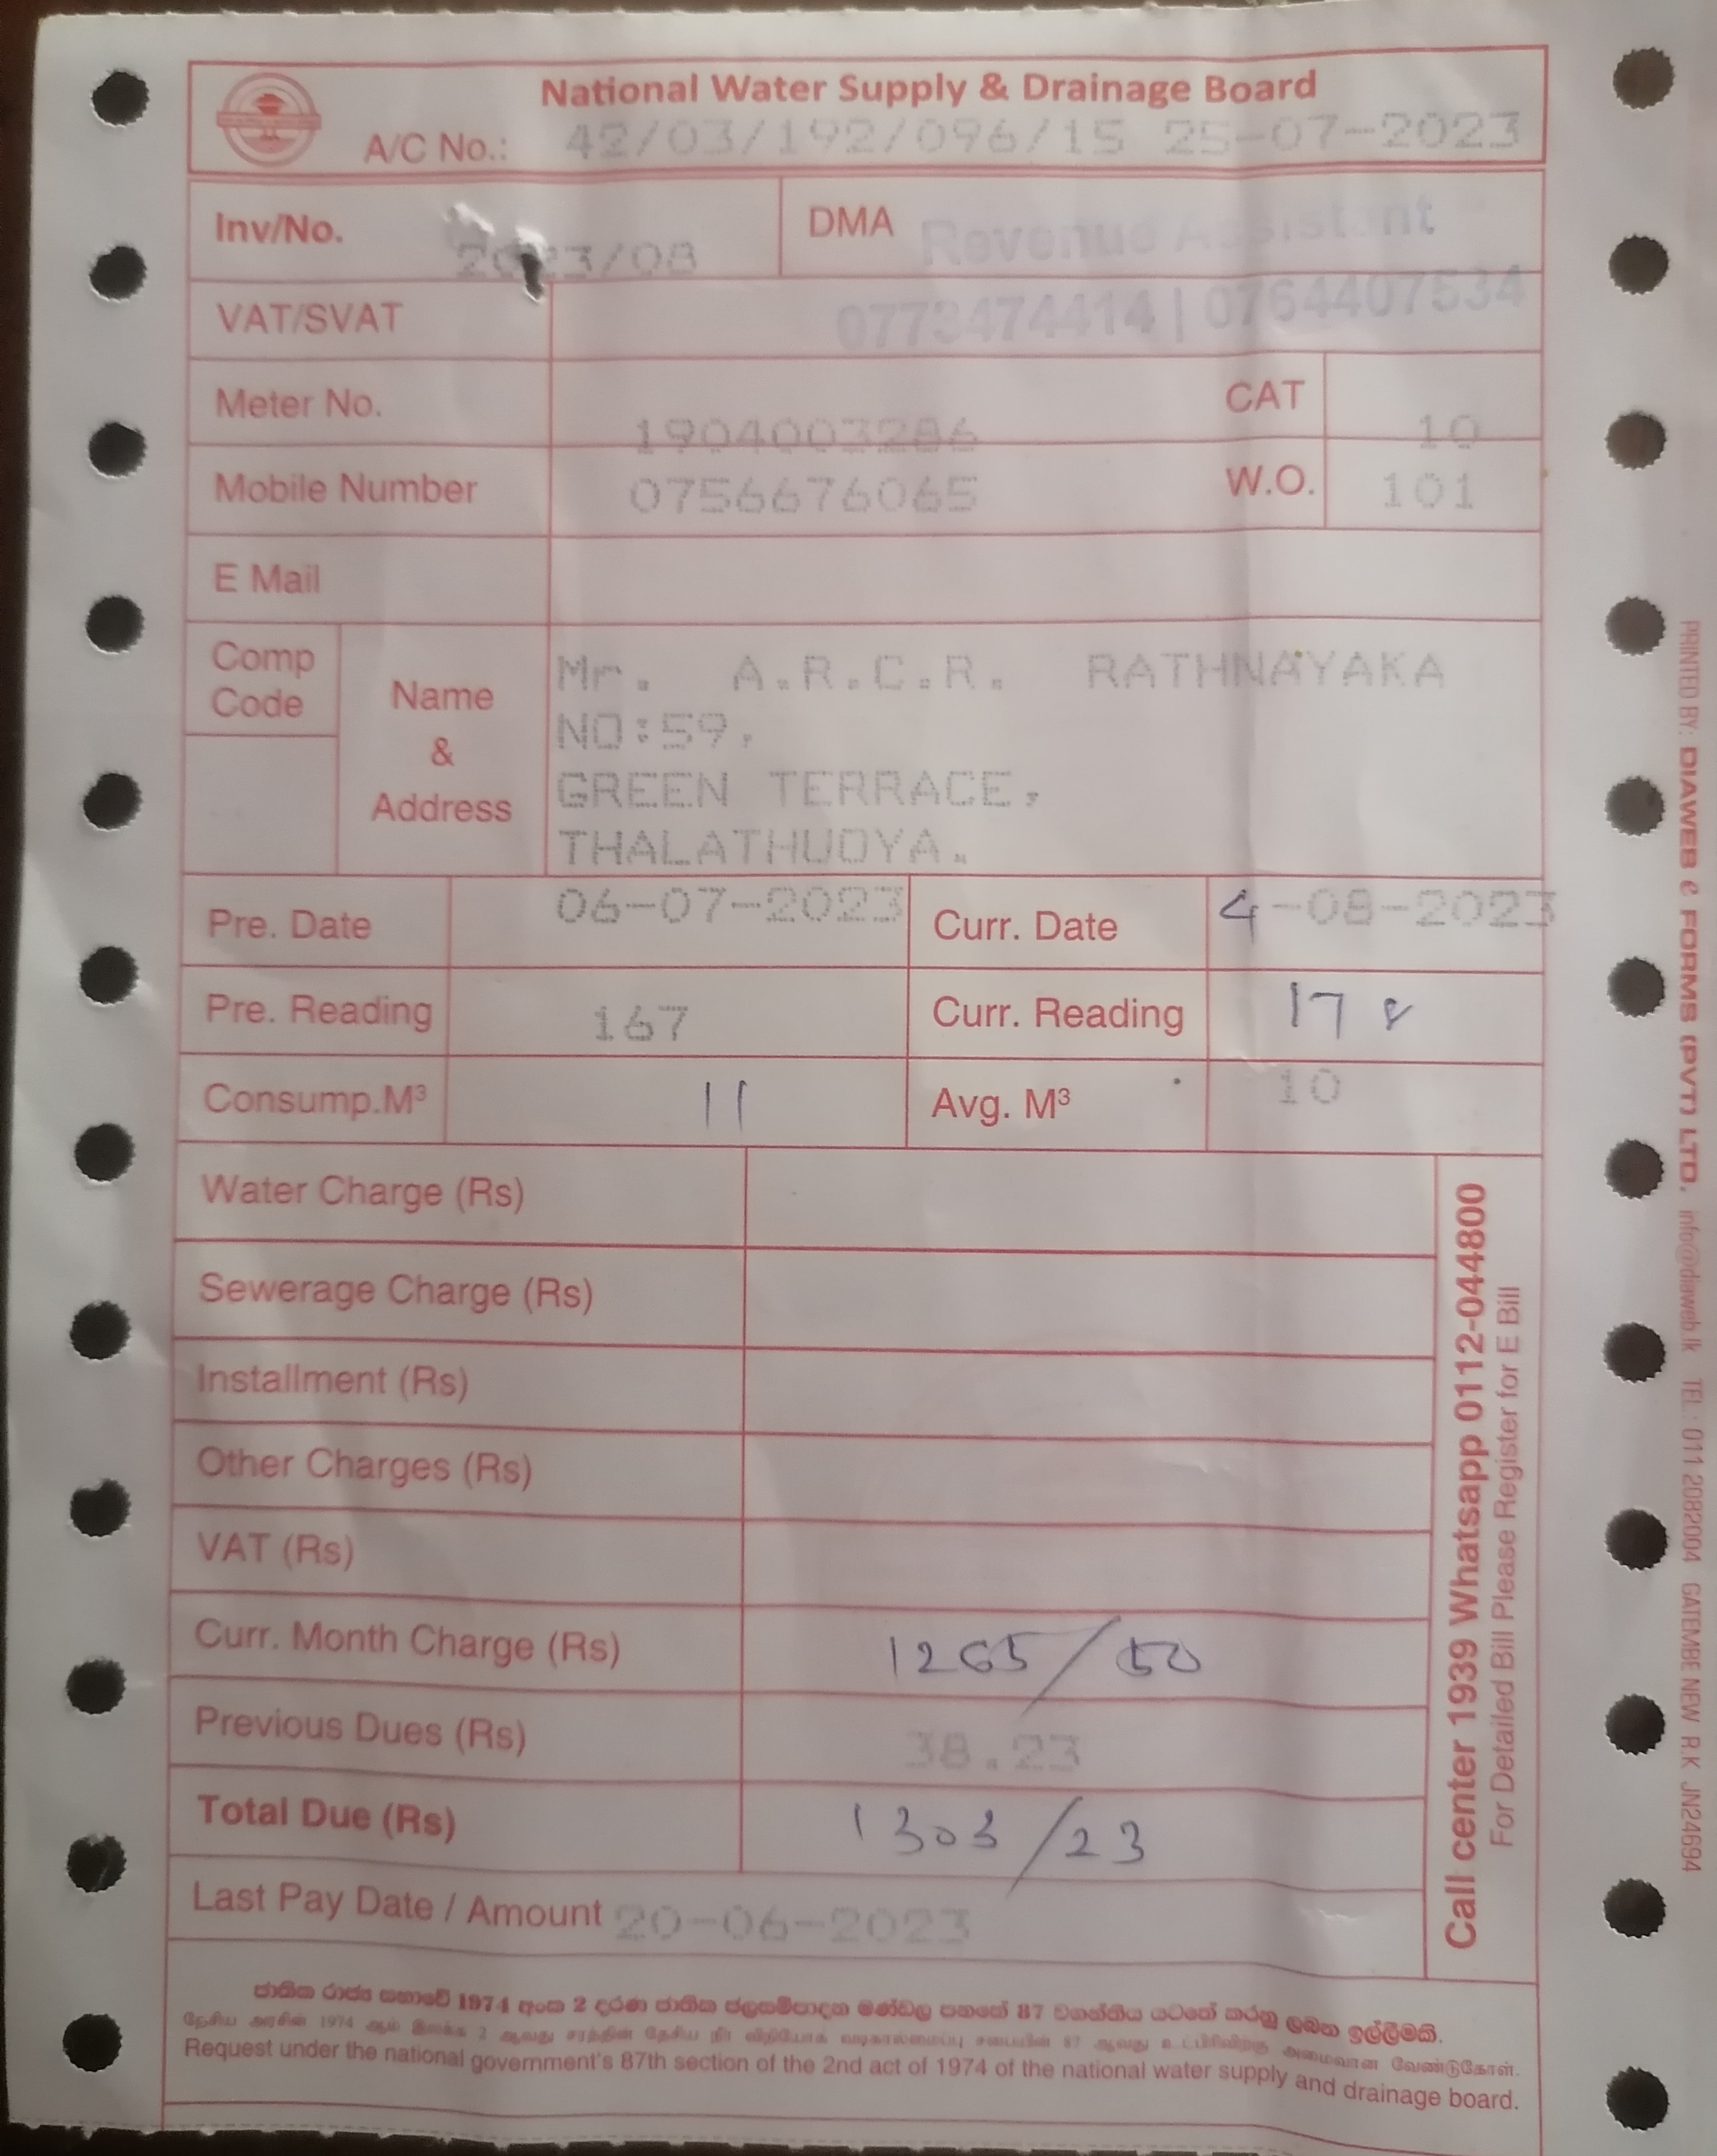 National Water Supply & Drainage Board
A/C No.: 42/03/192/096/15 25-07-2023
Inv/No. 2023/08 DMA Revenue Assistant
VAT/SVAT 0773474414 | 0764407534
Meter No. 1904003286 CAT 10
Mobile Number 0756676065 W.O. 101
E Mail
Comp Code
Name & Address
Mr. A.R.C.R. RATHNAYAKA
NO:59,
GREEN TERRACE,
THALATHUOYA.
Pre. Date 06-07-2023 Curr. Date 4-08-2023
Pre. Reading 167 Curr. Reading 178
Consump.M³ 11 Avg. M³ 10
Water Charge (Rs)
Sewerage Charge (Rs)
Installment (Rs)
Other Charges (Rs)
VAT (Rs)
Curr. Month Charge (Rs) 1265/50
Previous Dues (Rs) 38.23
Total Due (Rs) 1303/23
Last Pay Date / Amount 20-06-2023
Call center 1939 Whatsapp 0112-044800
For Detailed Bill Please Register for E Bill
ජාතික රාජ්‍ය සභාවේ 1974 අංක 2 දරණ ජාතික ජලසම්පාදන මණ්ඩල පනතේ 87 වගන්තිය යටතේ කරනු ලබන ඉල්ලීමයි.
தேசிய அரசின் 1974 ஆம் இலக்க 2 ஆவது தேசிய நீர் 87 ஆவது அமைவான வேண்டுகோள்.
Request under the national government's 87th section of the 2nd act of 1974 of the national water supply and drainage board.
PRINTED BY: DIAWEB e FORMS (PVT) LTD. info@diaweb.lk TEL : 011 2082004 GATEMBE NEW R.K JN24694